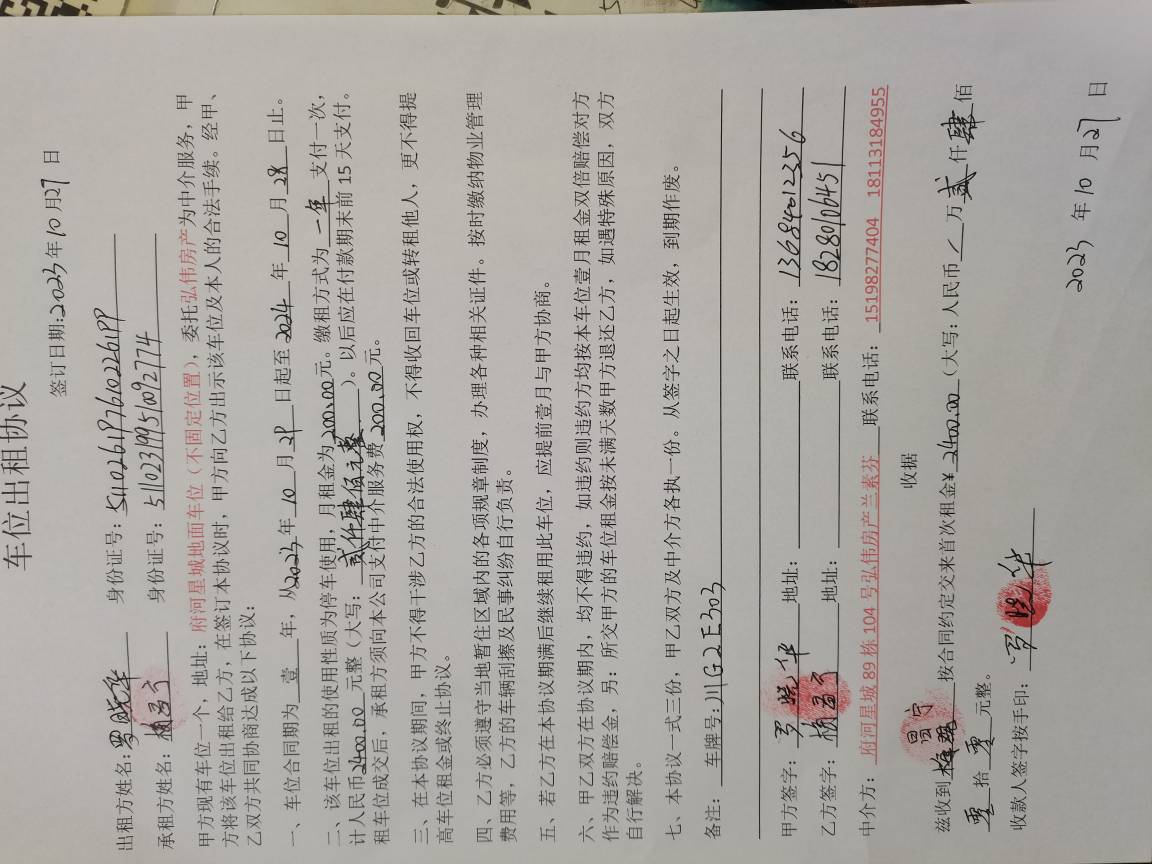 车位出租协议
签订日期:2023年10月27日
出租方姓名:罗晓华 身份证号:511026197610226199
承租方姓名: 杨昌宁 身份证号: 511023199510092774
甲方现有车位一个，地址：府河星城地面车位（不固定位置），委托弘伟房产为中介服务，甲
方将该车位出租给乙方，在签订本协议时，甲方向乙方出示该车位及本人的合法手续。经甲、
乙双方共同协商达成以下协议：
一、车位合同期为 壹 年，从2023年 10 月 29 日起至 2024 年 10 月 28 日止。
二、该车位出租的使用性质为停车使用，月租金为200.00元。缴租方式为 一年 支付一次，
计人民币2400.00 元整（大写： 贰仟肆佰元整 ）。以后应在付款期未前 15 天支付。
租车位成交后，承租方须向本公司支付中介服务费 200.00元。
三、在本协议期间，甲方不得干涉乙方的合法使用权，不得收回车位或转租他人，更不得提
高车位租金或终止协议。
四、乙方必须遵守当地暂住区域内的各项规章制度，办理各种相关证件。按时缴纳物业管理
费用等，乙方的车辆刮擦及民事纠纷自行负责。
五、若乙方在本协议期满后继续租用此车位，应提前壹月与甲方协商。
六、甲乙双方在协议期内，均不得违约，如违约则违约方均按本车位壹月租金双倍赔偿对方
作为违约赔偿金，另：所交甲方的车位租金按未满天数甲方退还乙方，如遇特殊原因，双方
自行解决。
七、本协议一式三份，甲乙双方及中介方各执一份。从签字之日起生效，到期作废。
备注： 车牌号:川G2E303
甲方签字： 罗晓华 地址： 联系电话： 13684012356
乙方签字： 杨昌宁 地址： 联系电话： 18280106451
中介方： 府河星城 89 栋 104 号弘伟房产兰素芬 联系电话： 15198277404 18113184955
收据
兹收到 杨昌宁 按合同约定交来首次租金¥ 2400.00 （大写：人民币 / 万 贰 仟 肆 佰
零 拾 零 元整。
收款人签字按手印： 罗晓华
2023 年 10 月 27 日